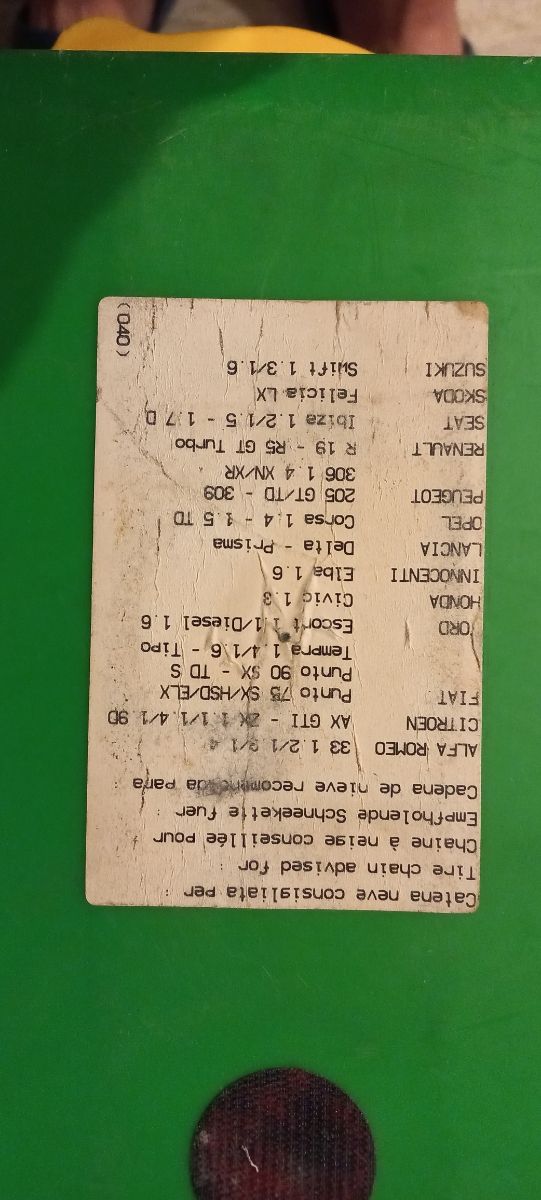 Catena neve consigliata per :
Tire chain advised for :
Chaine à neige conseillée pour
Empfholende Schneekette fuer :
Cadena de nieve recomendada para :
ALFA ROMEO 33 1.2/1.3/1.4
CITROEN AX GTI - ZX 1.1/1.4/1.9D
FIAT Punto 75 SX/HSD/ELX
Punto 90 SX - TD S
Tempra 1.4/1.6 - Tipo
FORD Escort 1.1/Diesel 1.6
HONDA Civic 1.3
INNOCENTI Elba 1.6
LANCIA Delta - Prisma
OPEL Corsa 1.4 - 1.5 TD
PEUGEOT 205 GT/TD - 309
306 1.4 XN/XR
RENAULT R 19 - R5 GT Turbo
SEAT Ibiza 1.2/1.5 - 1.7 D
SKODA Felicia LX
SUZUKI Swift 1.3/1.6
(040)